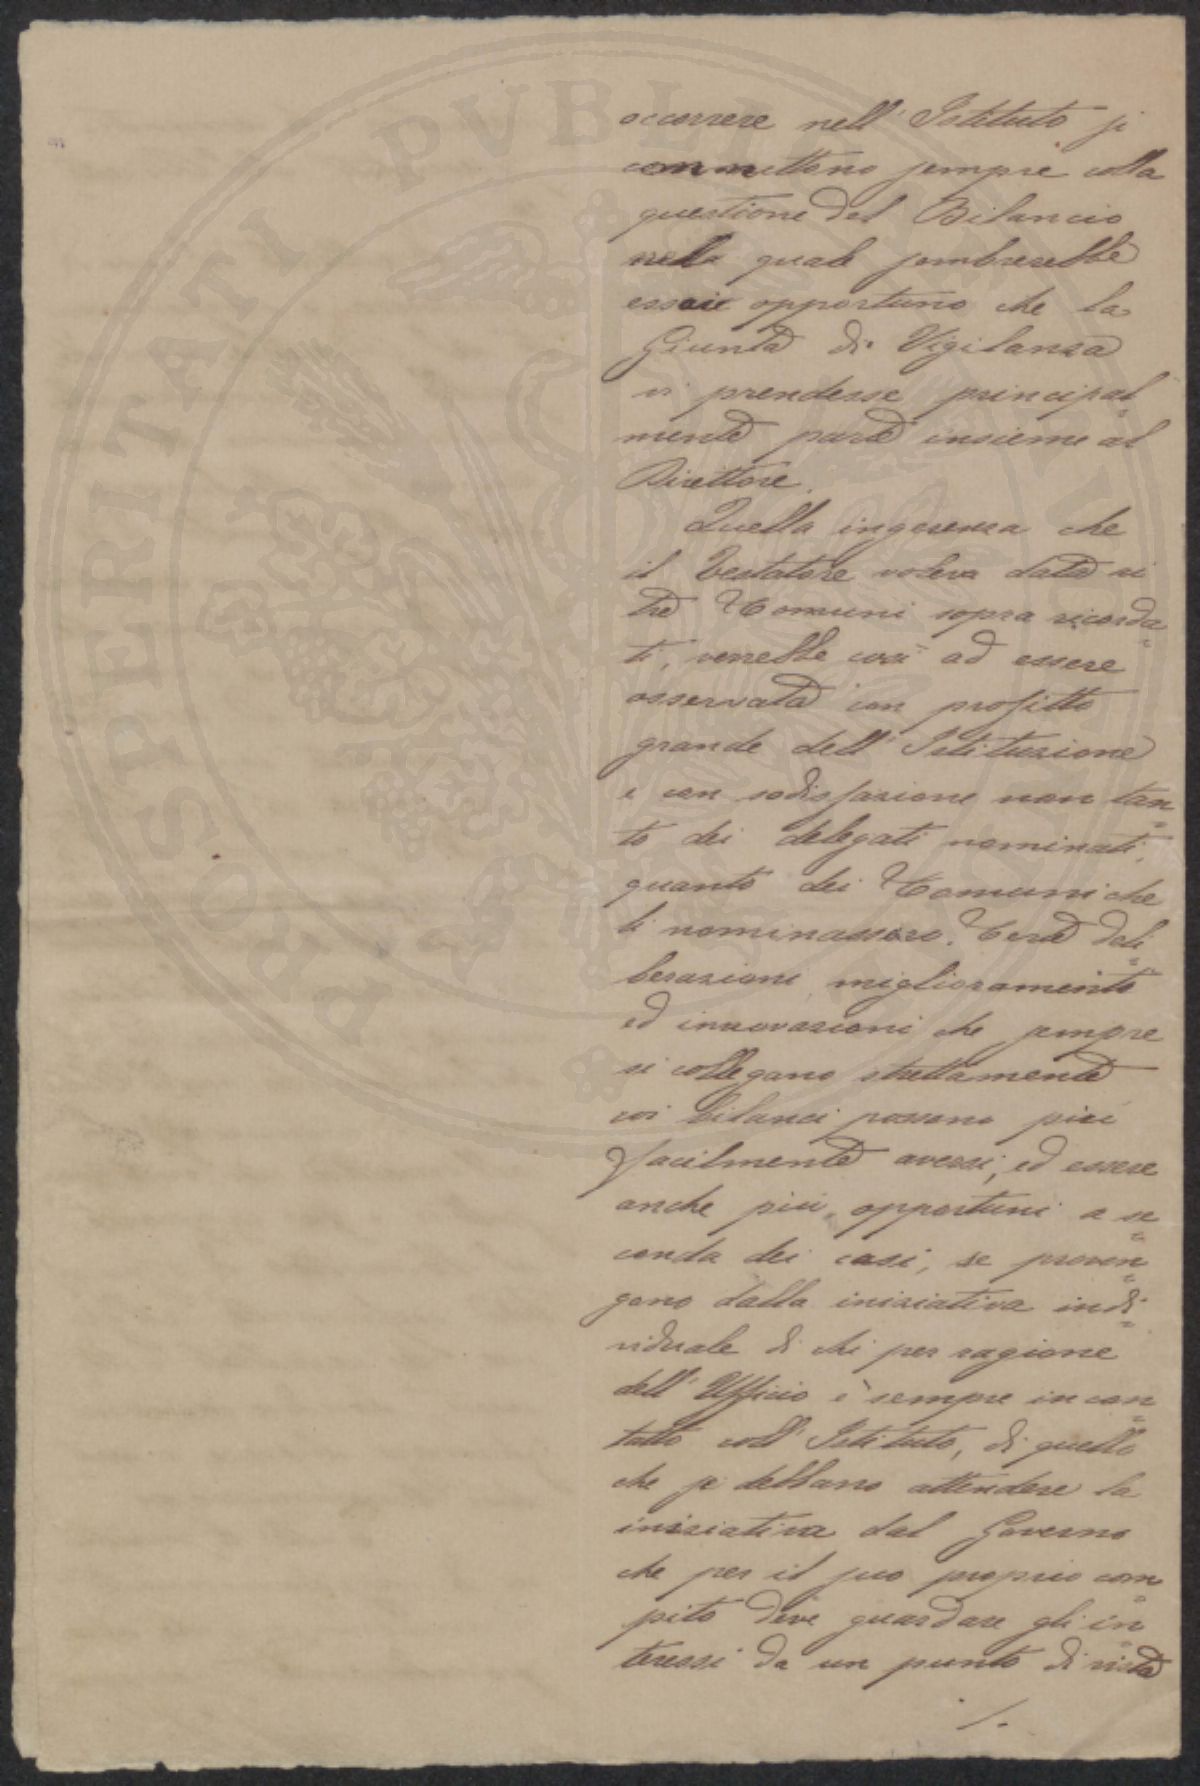 occorrere nell'Istituto si
connettono sempre colla
questione del Bilancio
nella quale sembrerebbe
essere opportuno che la
Giunta di Vigilanza
vi prendesse principal=
mente parte insieme al
Direttore.
Quella ingerenza che
il Testatore voleva data ai
tre Comuni sopra ricorda=
ti, verrebbe così ad essere
osservata con profitto
grande dell'Istituzione
e con sodisfazione non tan=
to dei delegati nominati,
quanto dei Comuni che
li nominassero. Certe deli=
berazioni miglioramento
ed innovazioni che sempre
si collegano strettamente
coi bilanci possono più
facilmente aversi, ed essere
anche più opportuni a se=
conda dei casi, se proven=
gono dalla iniziativa indi=
viduale di chi per ragione
dell'Ufficio è sempre in con=
tatto coll'Istituto, di quello
che se debbano attendere la
iniziativa dal Governo
che per il suo proprio com=
pito deve guardare gli in=
teressi da un punto di vista
./.
PROSPERITATI PVBLICAE